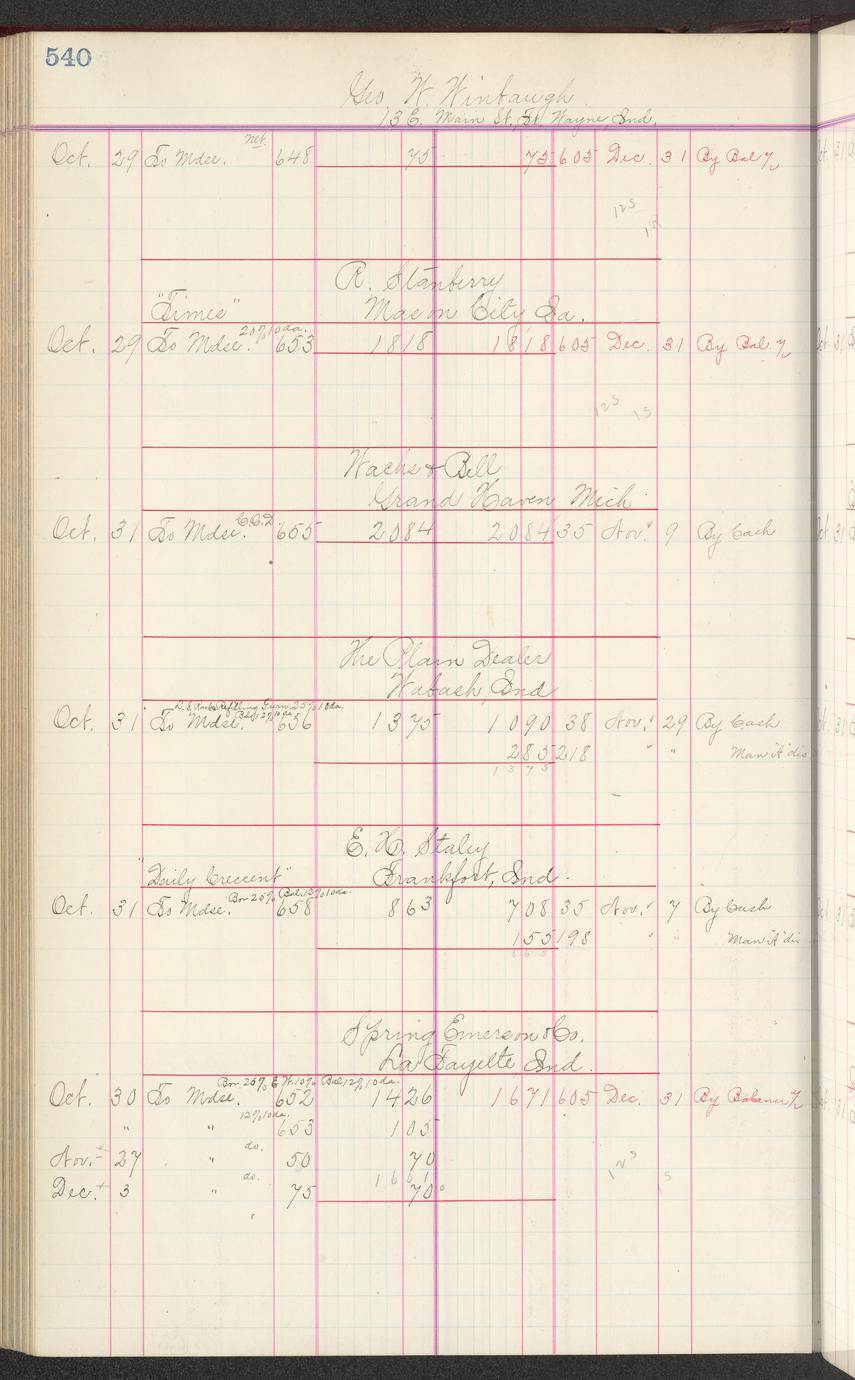 540
Geo. W. Winbaugh
13 E. Main St., Ft. Wayne, Ind.
Oct. 29 To Mdse. net 648 75 75 605 Dec. 31 By Bal
123
R. Stanberry
"Times" Mason City Ia.
Oct. 29 To Mdse. 20% 10 da. 653 1818 1818 605 Dec. 31 By Bal.
123 15
Wachs & Bell
Grand Haven Mich
Oct. 31 To Mdse. C.O.D. 655 2084 2084 35 Nov. 9 By Cash
The Plain Dealer
Wabash, Ind
25% 10 da.
Oct. 31 To Mdse. Bal 12% 10 da. 656 1375 1090 38 Nov. 29 By Cash
285 218 " " Man "A" dis
1375
E. H. Staley
"Daily Crescent" Frankfort, Ind.
Bor 25% Bal. 12% 10 da.
Oct. 31 To Mdse. 658 863 708 35 Nov. 7 By Cash
155 198 " " Man "A" dis
863
Spring Emerson & Co.
La Fayette Ind.
Bor. 25% E. W. 10% Bal 12% 10 da.
Oct. 30 To Mdse. 652 1426 1671 605 Dec. 31 By Balance
" " 12% 10 da. 653 105
Nov. 27 " do. 50 70
Dec. 3 " do. 75 70
123